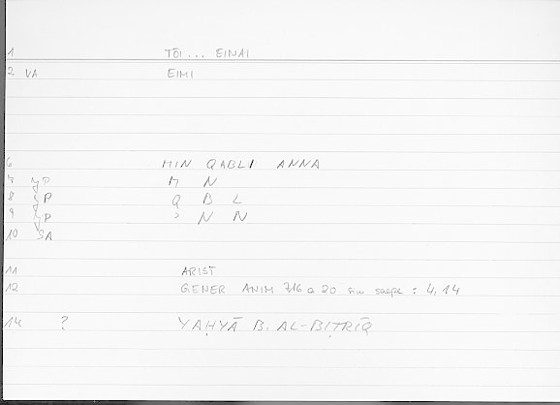 1 TŌI... EINAI
2 VA EIMI
6 MIN QABLI ANNA
7 M N
8 Q B L
9 ʾ N N
10 SA
11 ARIST
12 GENER ANIM 716 a 20 sim saepe : 4, 14
14 ? YAḤYĀ B. AL-BIṬRĪQ